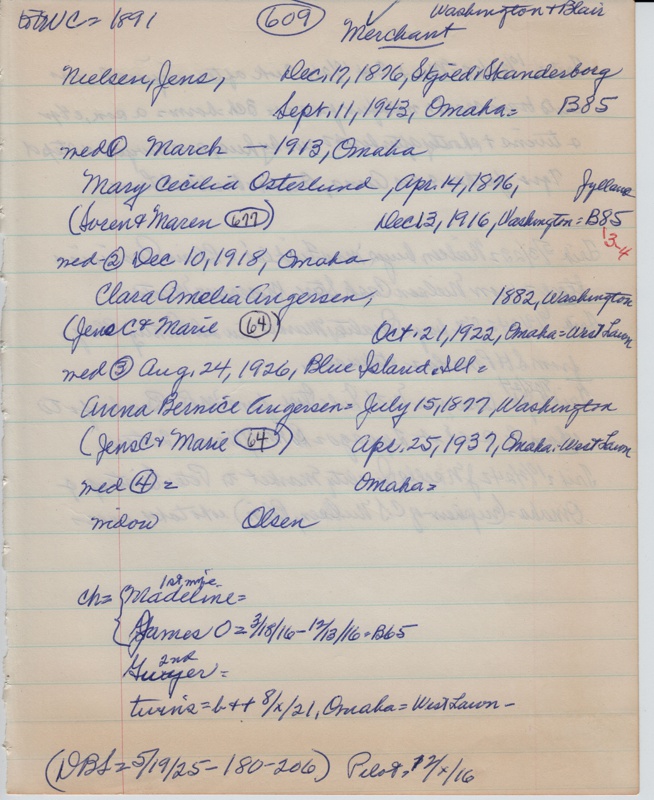 to WC = 1891 (609) Washington & Blair
Merchant
Nielsen, Jens, Dec, 17, 1876, Skjoed, Skanderborg
Sept. 11, 1943, Omaha = B85
med ① March — 1913, Omaha
Mary Cecilia Osterlund, Apr. 14, 1876, Jylland
(Soren & Maren (677) Dec 13, 1916, Washington = B85
13-4
med ② Dec 10, 1918, Omaha
Clara Amelia Angersen, 1882, Washington
(Jens C & Marie (64) Oct. 21, 1922, Omaha = West Lawn
med ③ Aug. 24, 1926, Blue Island, Ill =
Anna Bernice Angersen = July 15, 1877, Washington
(Jens C & Marie (64)) Apr. 25, 1937, Omaha, West Lawn
med ④ = Omaha =
widow Olsen
1st wife
ch = { Madeline =
James O = 3/18/16 - 12/13/16 = B65
2nd
twins = b & + 8/x/21, Omaha = West Lawn -
(DBS = 5/19/25 - 180 - 206) Pilot, 12/x/16